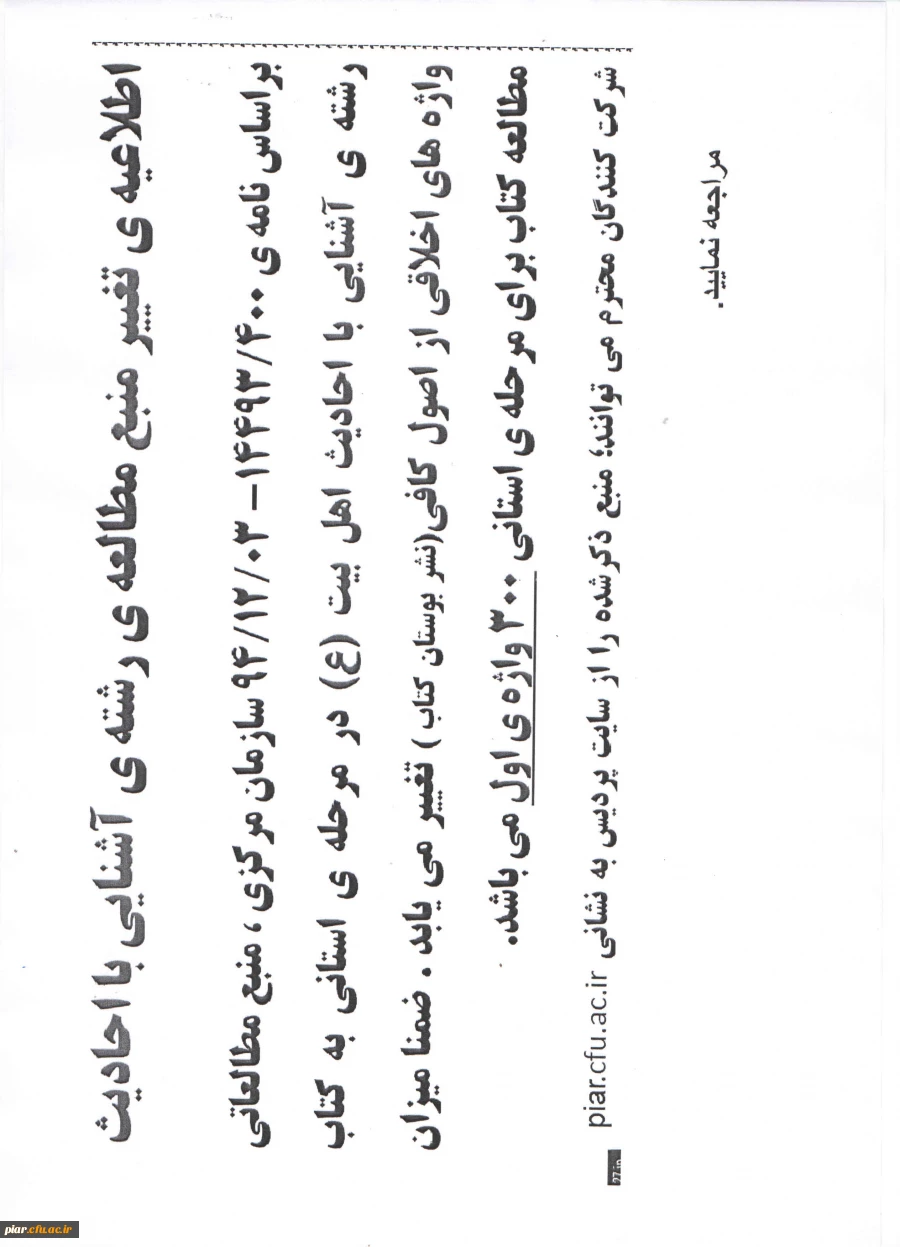 اطلاعیه ی تغییر منبع مطالعه ی رشته ی آشنایی با احادیث
براساس نامه ی ۱۴۴۹۳/۴۰۰ – ۹۴/۱۲/۰۳ سازمان مرکزی ، منبع مطالعاتی
رشته ی آشنایی با احادیث اهل بیت (ع) در مرحله ی استانی به کتاب
واژه های اخلاقی از اصول کافی(نشر بوستان کتاب ) تغییر می یابد . ضمنا میزان
مطالعه کتاب برای مرحله ی استانی ۳۰۰ واژه ی اول می باشد.
شرکت کنندگان محترم می توانند؛ منبع ذکرشده را از سایت پردیس به نشانی piar.cfu.ac.ir
مراجعه نمایید.
piar.cfu.ac.ir